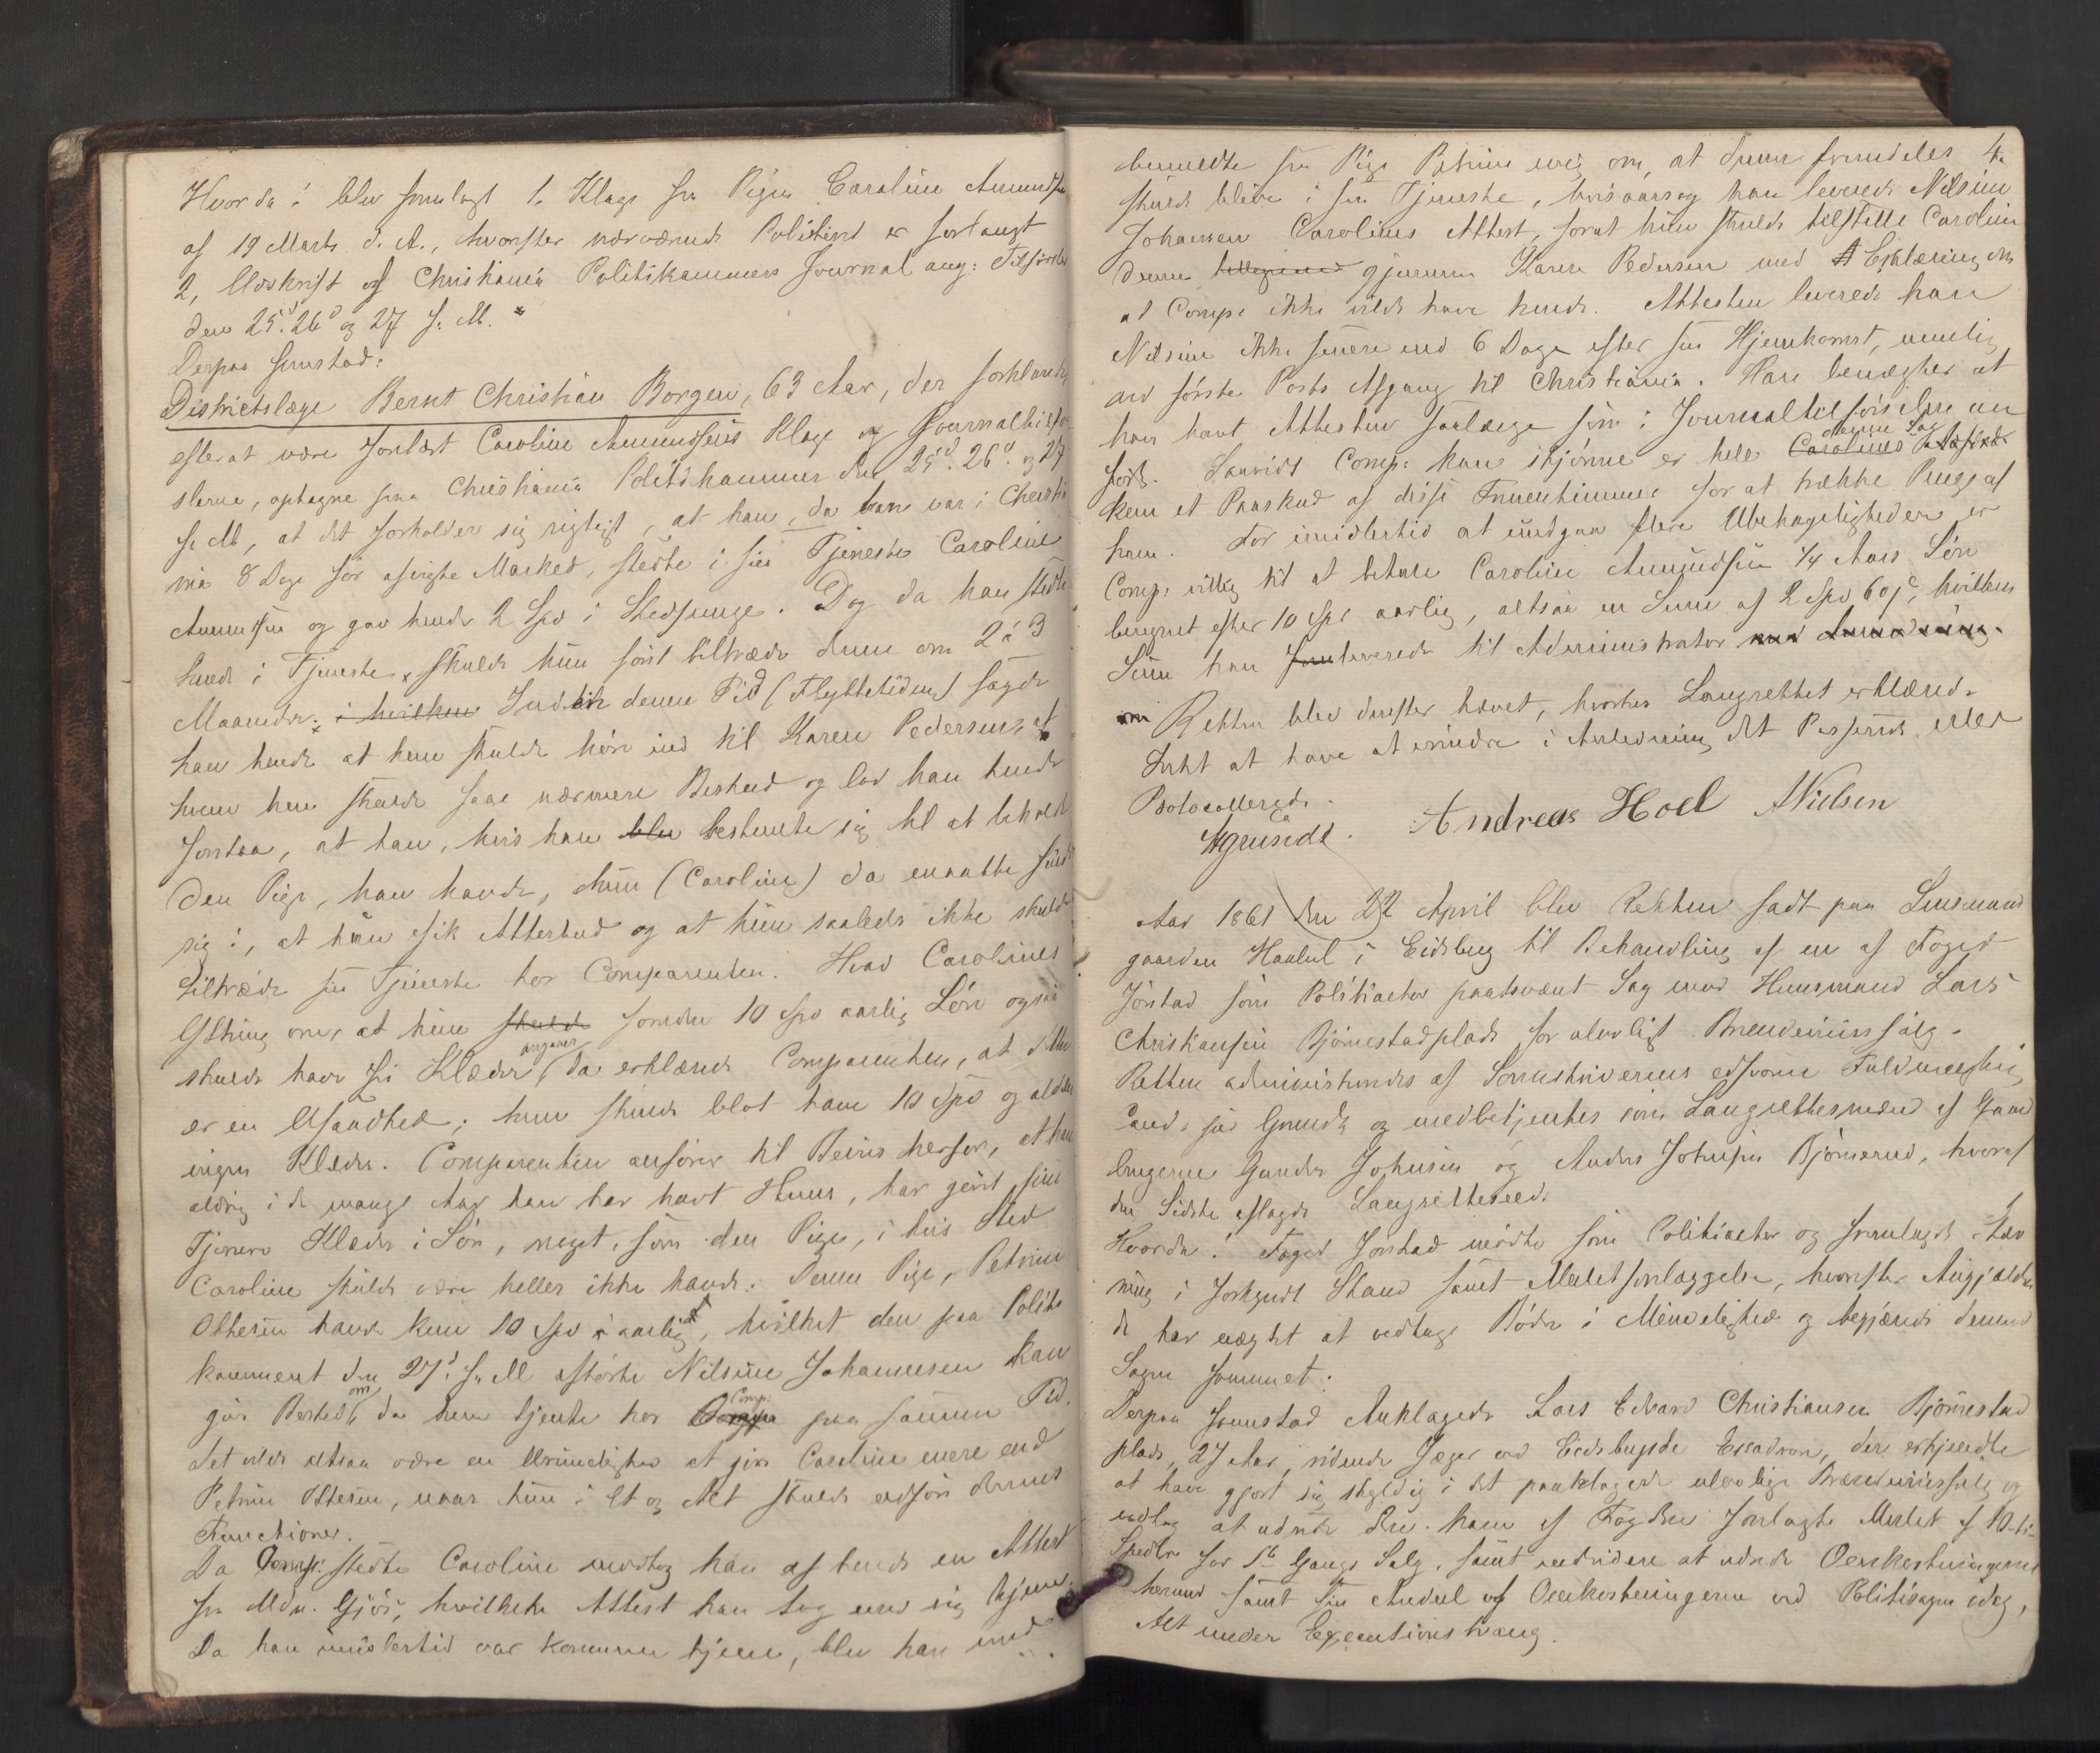 Hvorda: blev fremlagt 1, Klage fra Pigen Caroline Amundsen
af 19 Marts d. A., hvorefter nærværende Politiforhør er forlangt
2, Udskrift af Christiania Politikammers Journal ang: Tilførsler
den 25d. 26d og 27 f. M.
Derpaa fremstod:
Districtslæge Bernt Christian Borgen, 63 Aar, der forklarede
efterat være forelæst Caroline Amundsens Klage og Journaltilfør-
slerne, optagne paa Christiania Politikammer den 25d. 26d. og 27
f. M, at det forholder sig rigtigt, at han, da han var i Christia
nia 8 Dage før afvigte Marked, fæstede i sin Tjeneste Caroline
Amundsen og gav hende 2 Spd i Fæstepenge. Dog da han fæstede
hende i Tjeneste, skulde hun først tiltræde denne om 2 à 3
Maaneder; i hvilken Indtil denne Tid (Flyttetiden) sagde
han hende at hun skulde høre ind til Karen Pedersen, af
hvem hun skulde faae nærmere Beskeed og lod han hende
forstaa, at han, hvis han blev bestemte sig til at beholde
den Pige, han havde, hun (Caroline) da maatte finde
sig i, at hun fik Afterbud og at hun saaledes ikke skulde
tiltræde sin Tjeneste hos Comparenten. Hvad Carolines
Ytring om, at hun skulde foruden 10 Spd aarlig Løn ogsaa
skulde have fri Klæder angaaer, da erklærede Comparenten, at dette
er en Usandhed; hun skulde blot have 10 Spd og aldeles
ingen Klæder. Comparenten anfører til Beviis herfor, at han
aldrig i de mange Aar han har havt Huus, har givet sine
Tjenere Klæder i Løn, noget, som den Pige, i hvis Sted
Caroline skulde være heller ikke havde. Denne Pige, Petrine
Ottesen havde kun 10 Spd aarlig, hvilket den paa Politi
kammeret den 27d. f. M afhørte Nilsine Johannesen kan
give Beskeed om, da hun tjente hos Comp: paa samme Tid.
Det vilde altsaa være en Urimelighed at give Caroline mere end
Petrine Ottesen, naar hun i Et og Alt skulde udføre dennes
Functioner.
Da Comp: fæstede Caroline modtog han af hende en Attest
fra Md. Gjös, hvilken Attest han tog med sig hjem.
Da han imidlertid var kommen hjem, blev han med
bemeldte sin Pige Petrine enig om, at denne fremdeles 4.
skulde blive i sin Tjeneste, hvisaarsag han leverede Nilsine
Johansen Carolines Attest, forat hun skulde tilstille Caroline
denne gjennem Karen Pedersen med Erklæring om
at Comp: ikke vilde have hende. Attesten leverede han
Nilsine ikke senere end 6 Dage efter sin Hjemkomst, nemlig
ved første Posts Afgang til Christiania. Han benægter at
han havt Attesten saalænge som i Journaltilførslerne an
ført. Saavidt Comp: kan skjønne er hele Carolines denne Sag
kun et Paaskud af disse Fruentimmer for at trække Penge af
ham. For imidlertid at undgaa flere Ubehageligheder er
Comp: villig til at betale Caroline Amundsen 1/4 Aars Løn
beregnet efter 10 Spd aarlig, altsaa en Sum af 2 Spd 60 s, hvilken
Sum han leverede til Administrator
Retten blev derefter hævet, hvorhos Laugrettet erklærede
Intet at have at erindre i Anledning det Passerede eller
Protocollerede.
Andreas Hoel ANielsen
Aar 1861 den 22 April blev Retten sadt paa Lensmand
gaarden Haaleel i Eidsberg til Behandling af en af Foged
Jörstad som Politiacter paatevænt Sag mod Huusmand Lars
Christiansen Bjørnestadplads for ulovligt Brændeviinssalg.
Retten administreredes af Sorenskriverens edsvorne Fuldmægtig
Cand. jur Grundt og medbetjentes som Laugrettesmænd af Gaard
brugerne Gunder Johnsen og Anders Johnsen Bjørnerud, hvoraf
den Sidste aflagde Laugretteseed.
Hvorda: Foged Jörstad mødte som Politiacter og fremlagde Stæv
ning i forkyndt Stand samt Mulctforelæggelse, hvorefter Angjældn
de har nægtet at vedtage Bøder i Mindelighed og begjærede denne
Sagen fremmet:
Derpaa fremstod Anklagede Lars Edvard Christiansen Bjørnestad
plads, 27 Aar, ridende Jæger ved Eidsbergske Escadron, der erkjendte
at have gjort sig skyldig i det paaklagede ulovlige Brændeviinssalg og
vedtog at udrede den ham af Fogden forelagte Mulct af 10-ti-
Spdlr for 1ste Gangs Salg, samt endvidere at udrede Omkostningerne
herved samt sin Andeel af Omkostningerne ved Politisagen idag,
Alt under Executionstvang.